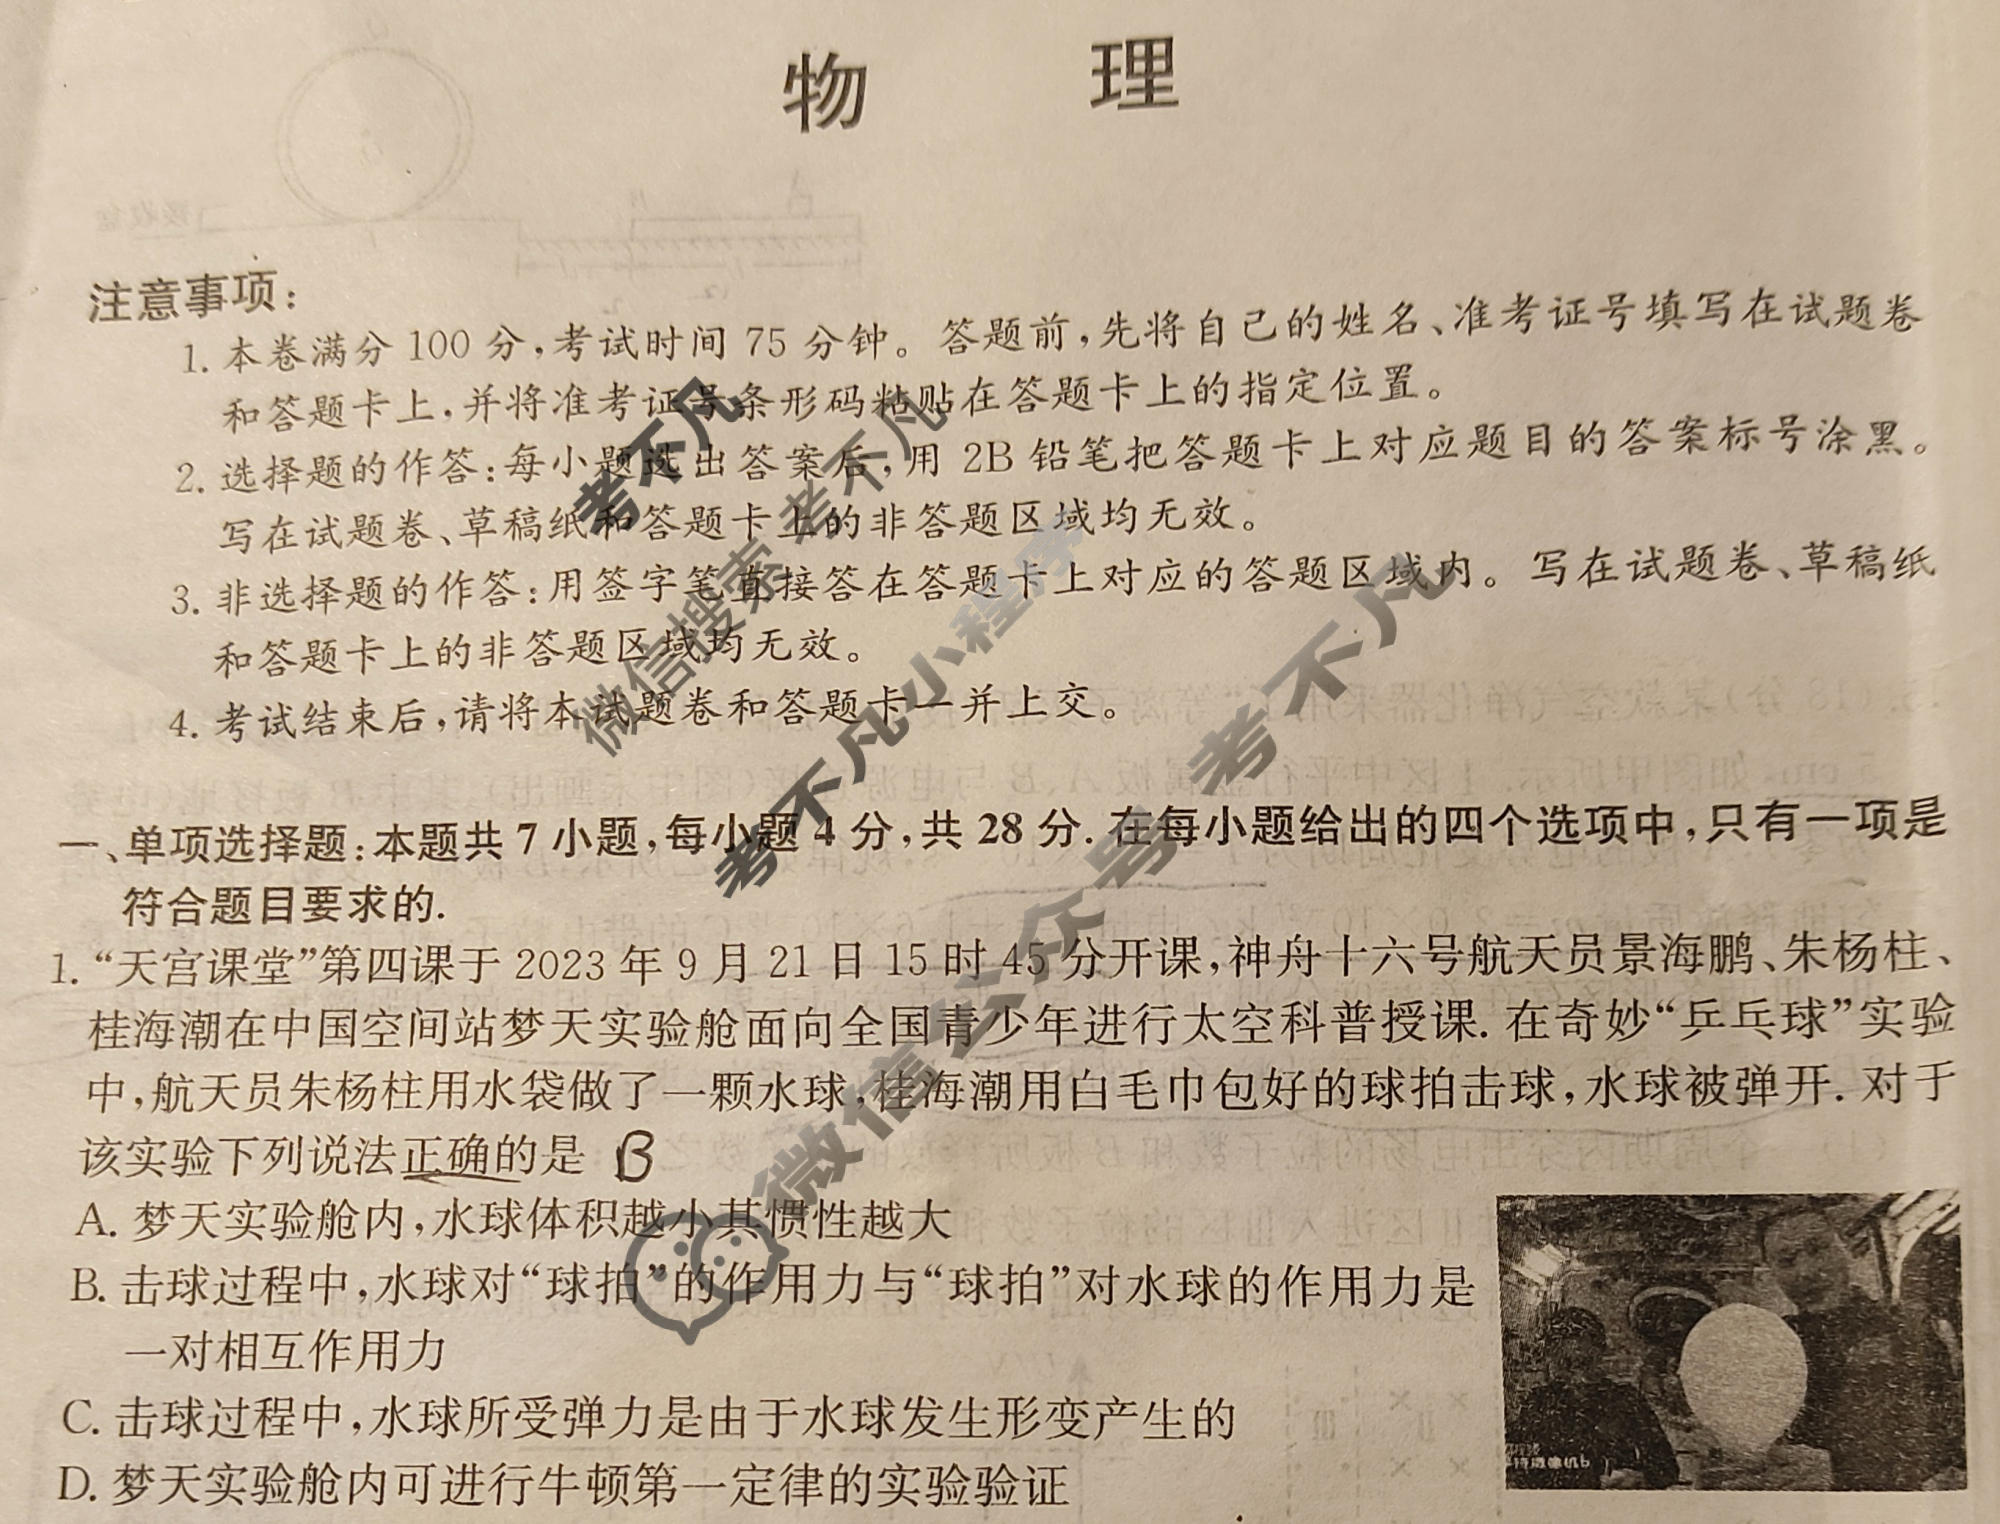 物 理
注意事项：
1. 本卷满分 100 分，考试时间 75 分钟。答题前，先将自己的姓名、准考证号填写在试题卷
和答题卡上，并将准考证号条形码粘贴在答题卡上的指定位置。
2. 选择题的作答：每小题选出答案后，用 2B 铅笔把答题卡上对应题目的答案标号涂黑。
写在试题卷、草稿纸和答题卡上的非答题区域均无效。
3. 非选择题的作答：用签字笔直接答在答题卡上对应的答题区域内。写在试题卷、草稿纸
和答题卡上的非答题区域均无效。
4. 考试结束后，请将本试题卷和答题卡一并上交。
一、单项选择题：本题共 7 小题，每小题 4 分，共 28 分. 在每小题给出的四个选项中，只有一项是
符合题目要求的.
1. “天宫课堂”第四课于 2023 年 9 月 21 日 15 时 45 分开课，神舟十六号航天员景海鹏、朱杨柱、
桂海潮在中国空间站梦天实验舱面向全国青少年进行太空科普授课. 在奇妙“乒乓球”实验
中，航天员朱杨柱用水袋做了一颗水球，桂海潮用白毛巾包好的球拍击球，水球被弹开. 对于
该实验下列说法正确的是 B
A. 梦天实验舱内，水球体积越小其惯性越大
B. 击球过程中，水球对“球拍”的作用力与“球拍”对水球的作用力是
一对相互作用力
C. 击球过程中，水球所受弹力是由于水球发生形变产生的
D. 梦天实验舱内可进行牛顿第一定律的实验验证
考不凡
微信搜索 考不凡
考不凡小程序
微信公众号 考不凡